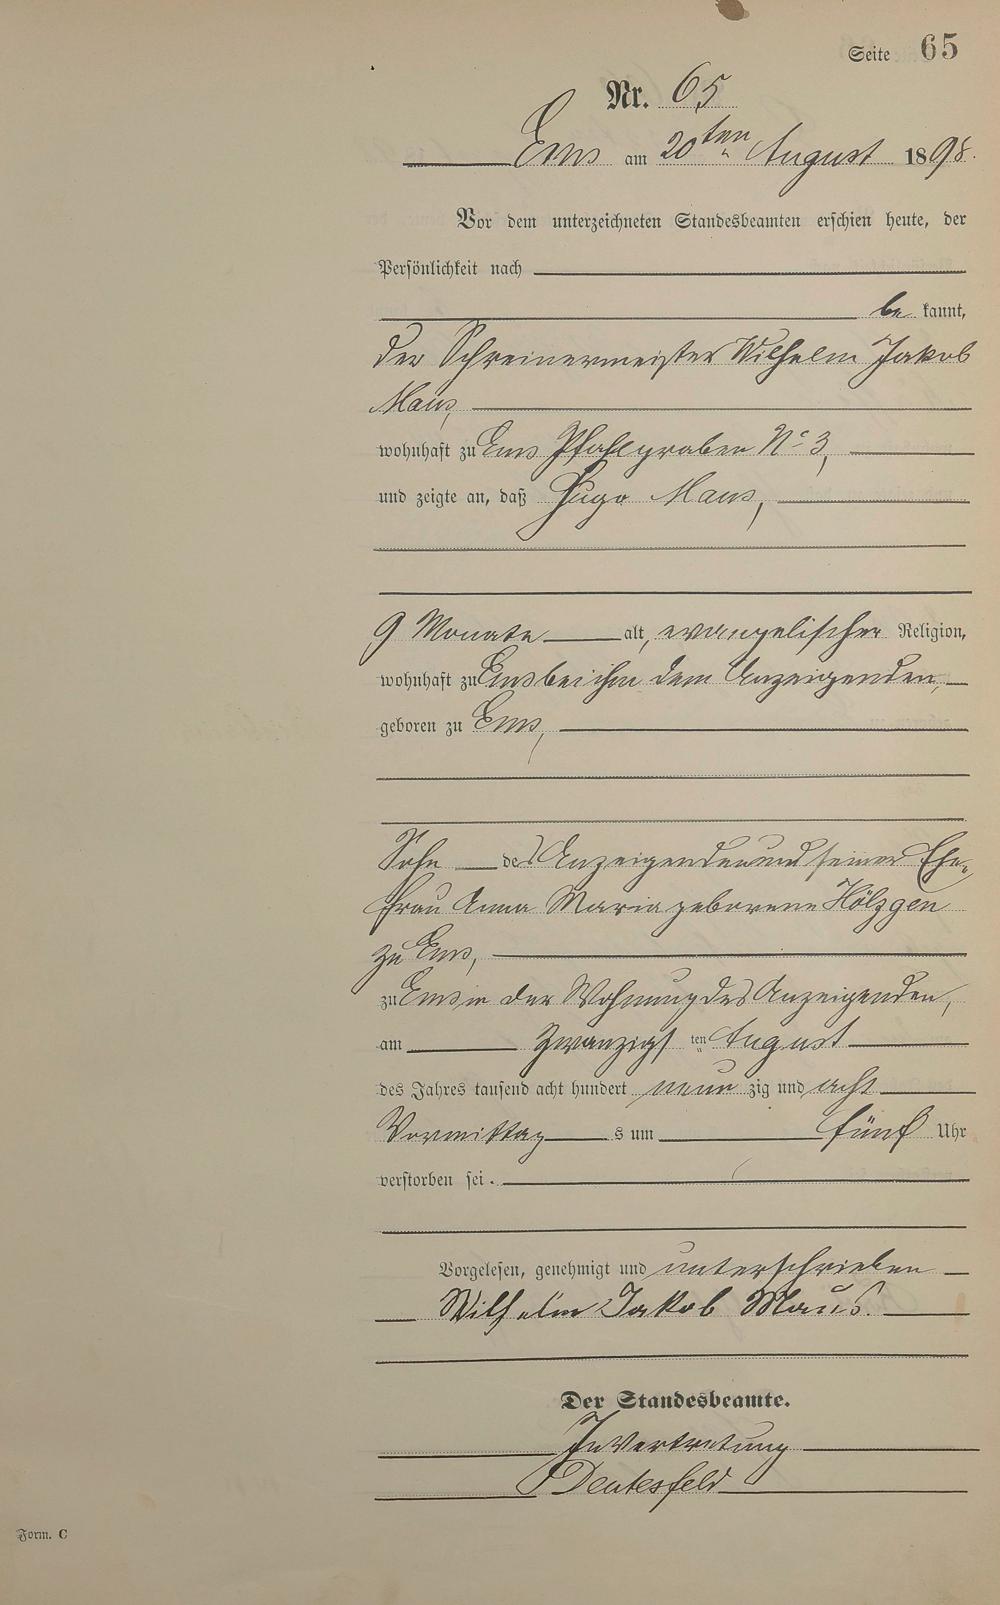 Seite 65
Nr. 65
Ems am 20ten August 1898.
Vor dem unterzeichneten Standesbeamten erschien heute, der
Persönlichkeit nach
be kannt,
der Schreinermeister Wilhelm Jakob
Maus,
wohnhaft zu Ems Pfahlgraben No 3,
und zeigte an, daß Hugo Maus,
9 Monate alt, evangelischer Religion,
wohnhaft zu Ems bei ihm dem Anzeigenden,
geboren zu Ems,
Sohn des Anzeigenden und seiner Ehe-
frau Anna Maria geborene Hölzgen
zu Ems,
zu Ems in der Wohnung des Anzeigenden,
am zwanzigsten August
des Jahres tausend acht hundert neun zig und acht
Vormittag s um fünf Uhr
verstorben sei.
Vorgelesen, genehmigt und unterschrieben
Wilhelm Jakob Maus.
Der Standesbeamte.
In Vertretung
Deutesfeld
Form. C